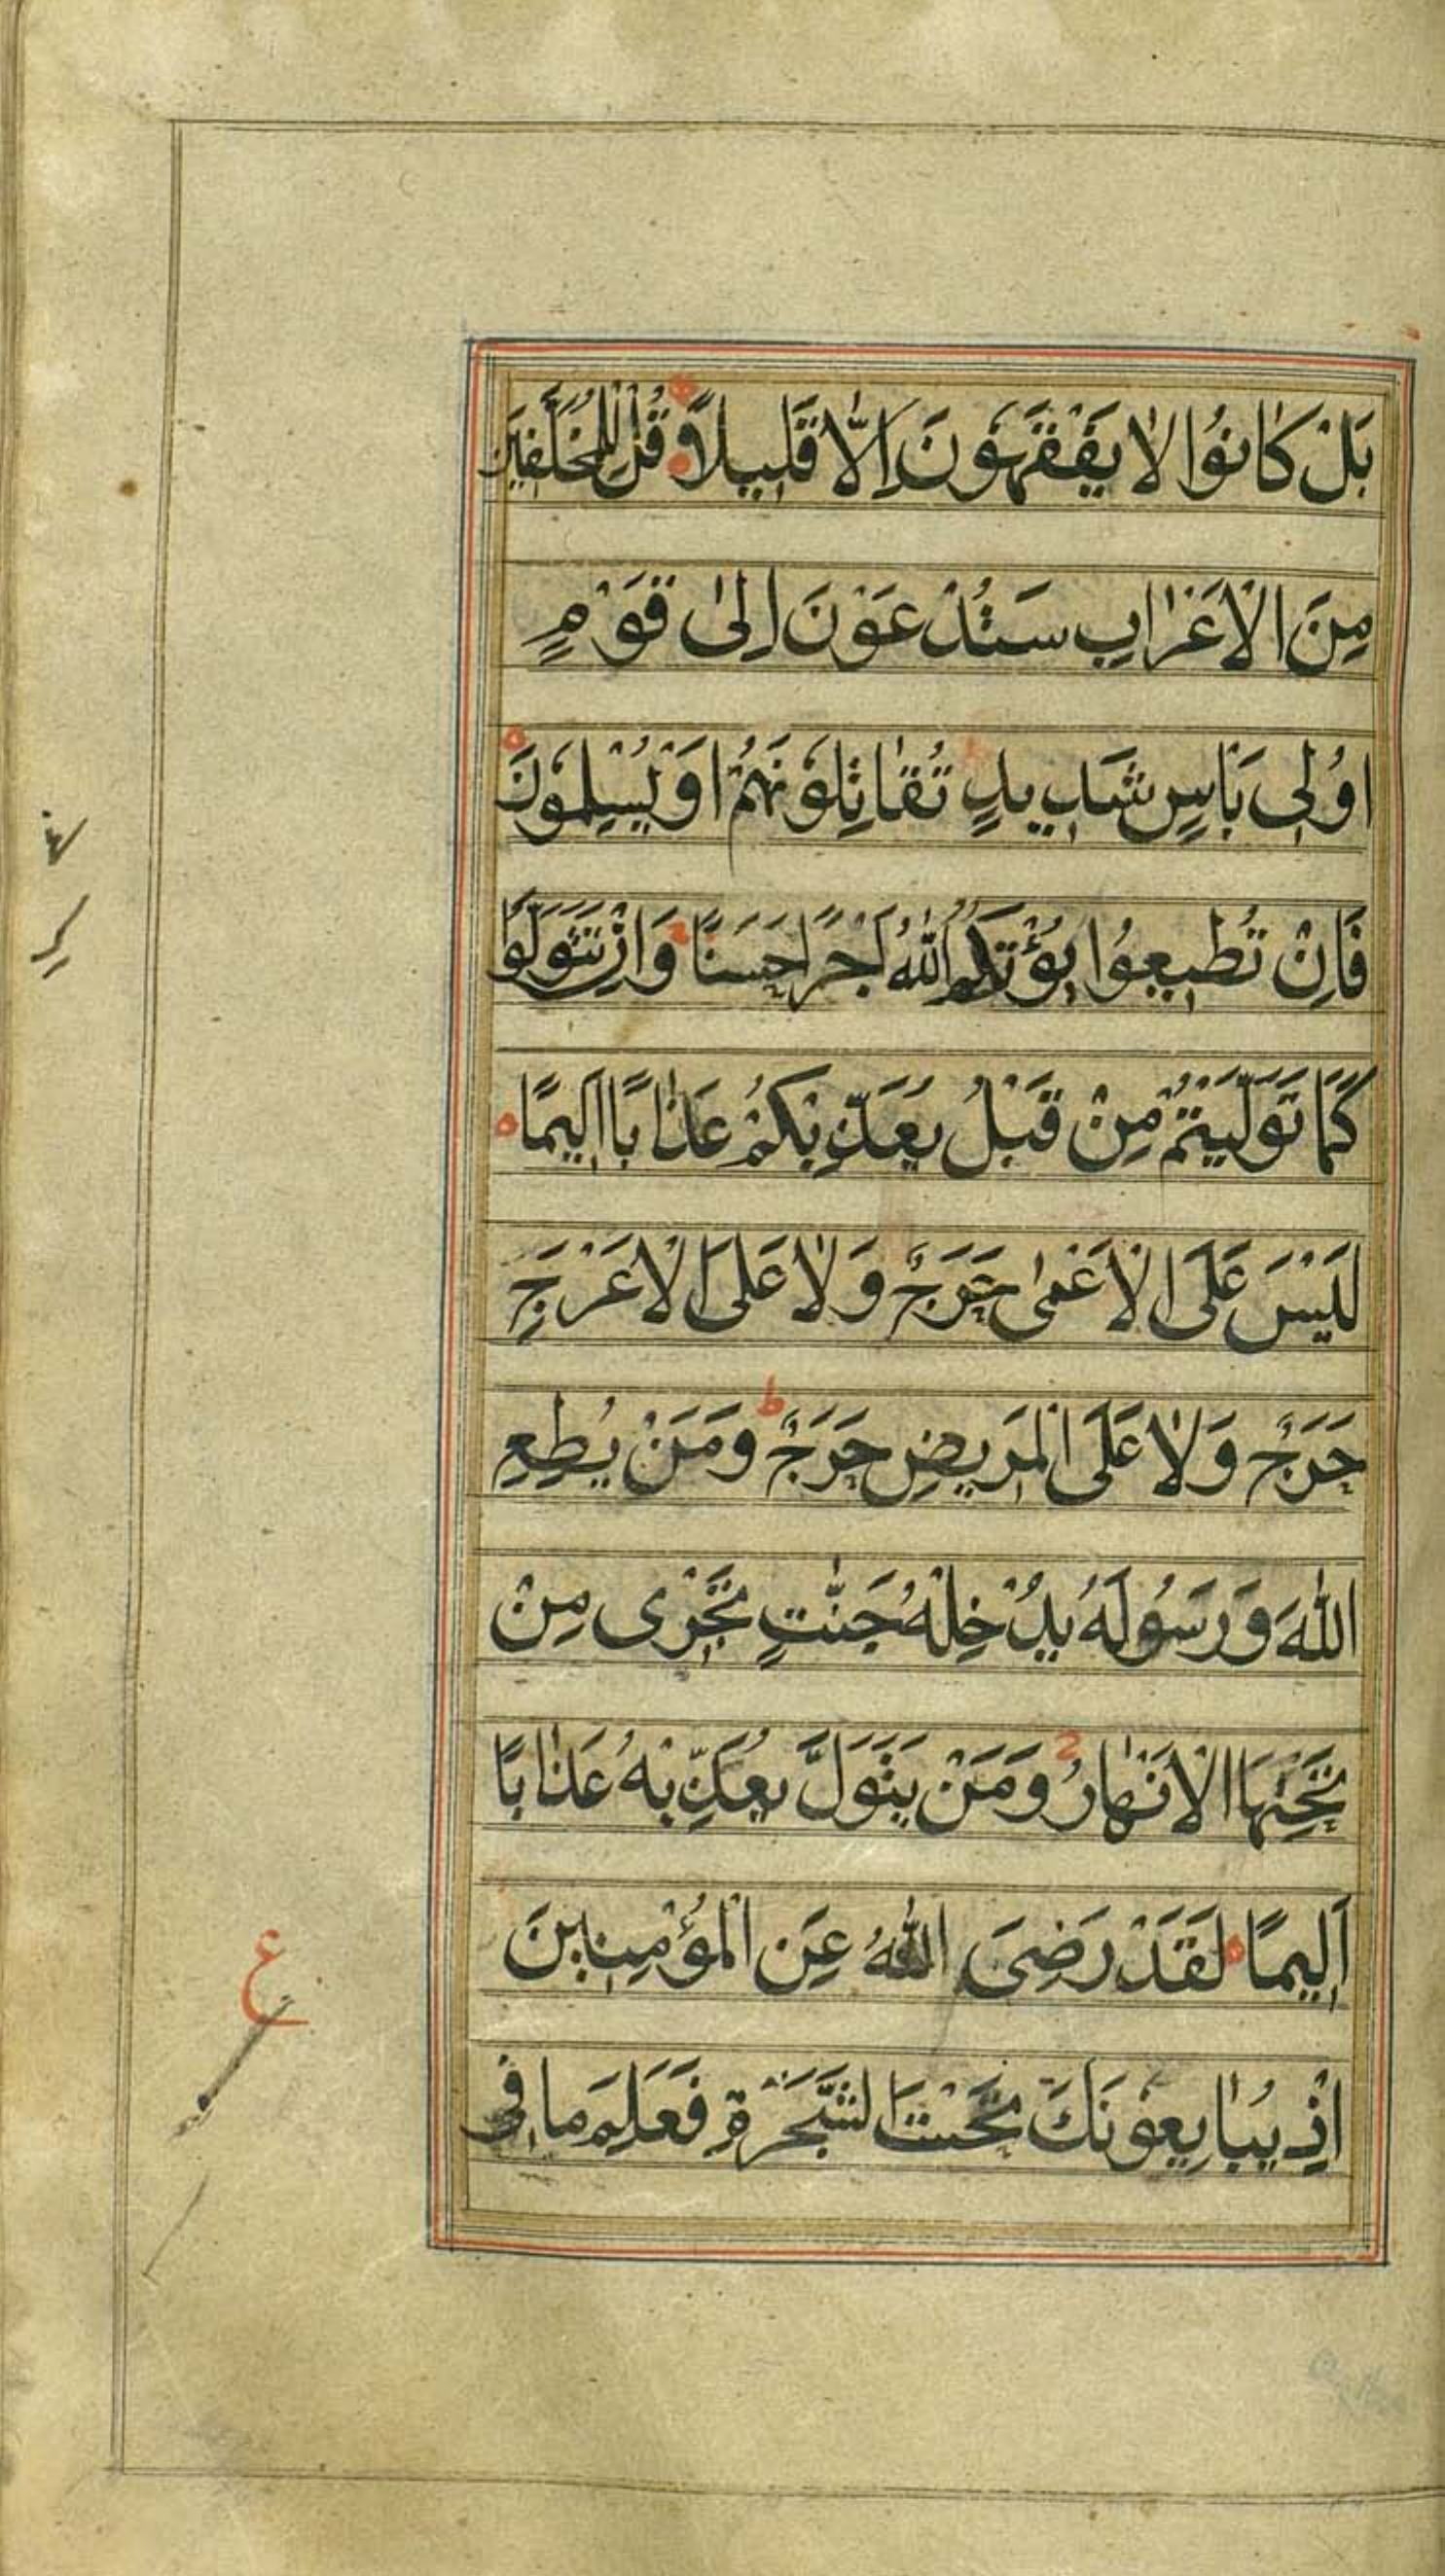 بَلْ كَانُوا لَا يَفْقَهُونَ اِلَّا قَلِيلًا قُلْ لِلْمُخَلَّفِينَ
مِنَ الْاَعْرَابِ سَتُدْعَوْنَ اِلىٰ قَوْمٍ
اُولِى بَاْسٍ شَدِيدٍ تُقَاتِلُوْنَهُمْ اَوْ يُسْلِمُوْنَ
فَاِنْ تُطِيعُوا يُؤْتِكُمُ اللّٰهُ اَجْرًا حَسَنًا وَاِنْ تَتَوَلَّوْا
كَمَا تَوَلَّيْتُمْ مِنْ قَبْلُ يُعَذِّبْكُمْ عَذَابًا اَلِيمًا
لَيْسَ عَلَى الْاَعْمىٰ حَرَجٌ وَلَا عَلَى الْاَعْرَجِ
حَرَجٌ وَلَا عَلَى الْمَرِيضِ حَرَجٌ ط وَمَنْ يُطِعِ
اللّٰهَ وَرَسُولَهُ يُدْخِلْهُ جَنّٰتٍ تَجْرِى مِنْ
تَحْتِهَا الْاَنْهَارُ وَمَنْ يَتَوَلَّ يُعَذِّبْهُ عَذَابًا
اَلِيمًا لَقَدْ رَضِىَ اللّٰهُ عَنِ الْمُؤْمِنِينَ
اِذْ يُبَايِعُونَكَ تَحْتَ الشَّجَرَةِ فَعَلِمَ مَا فِى
ع